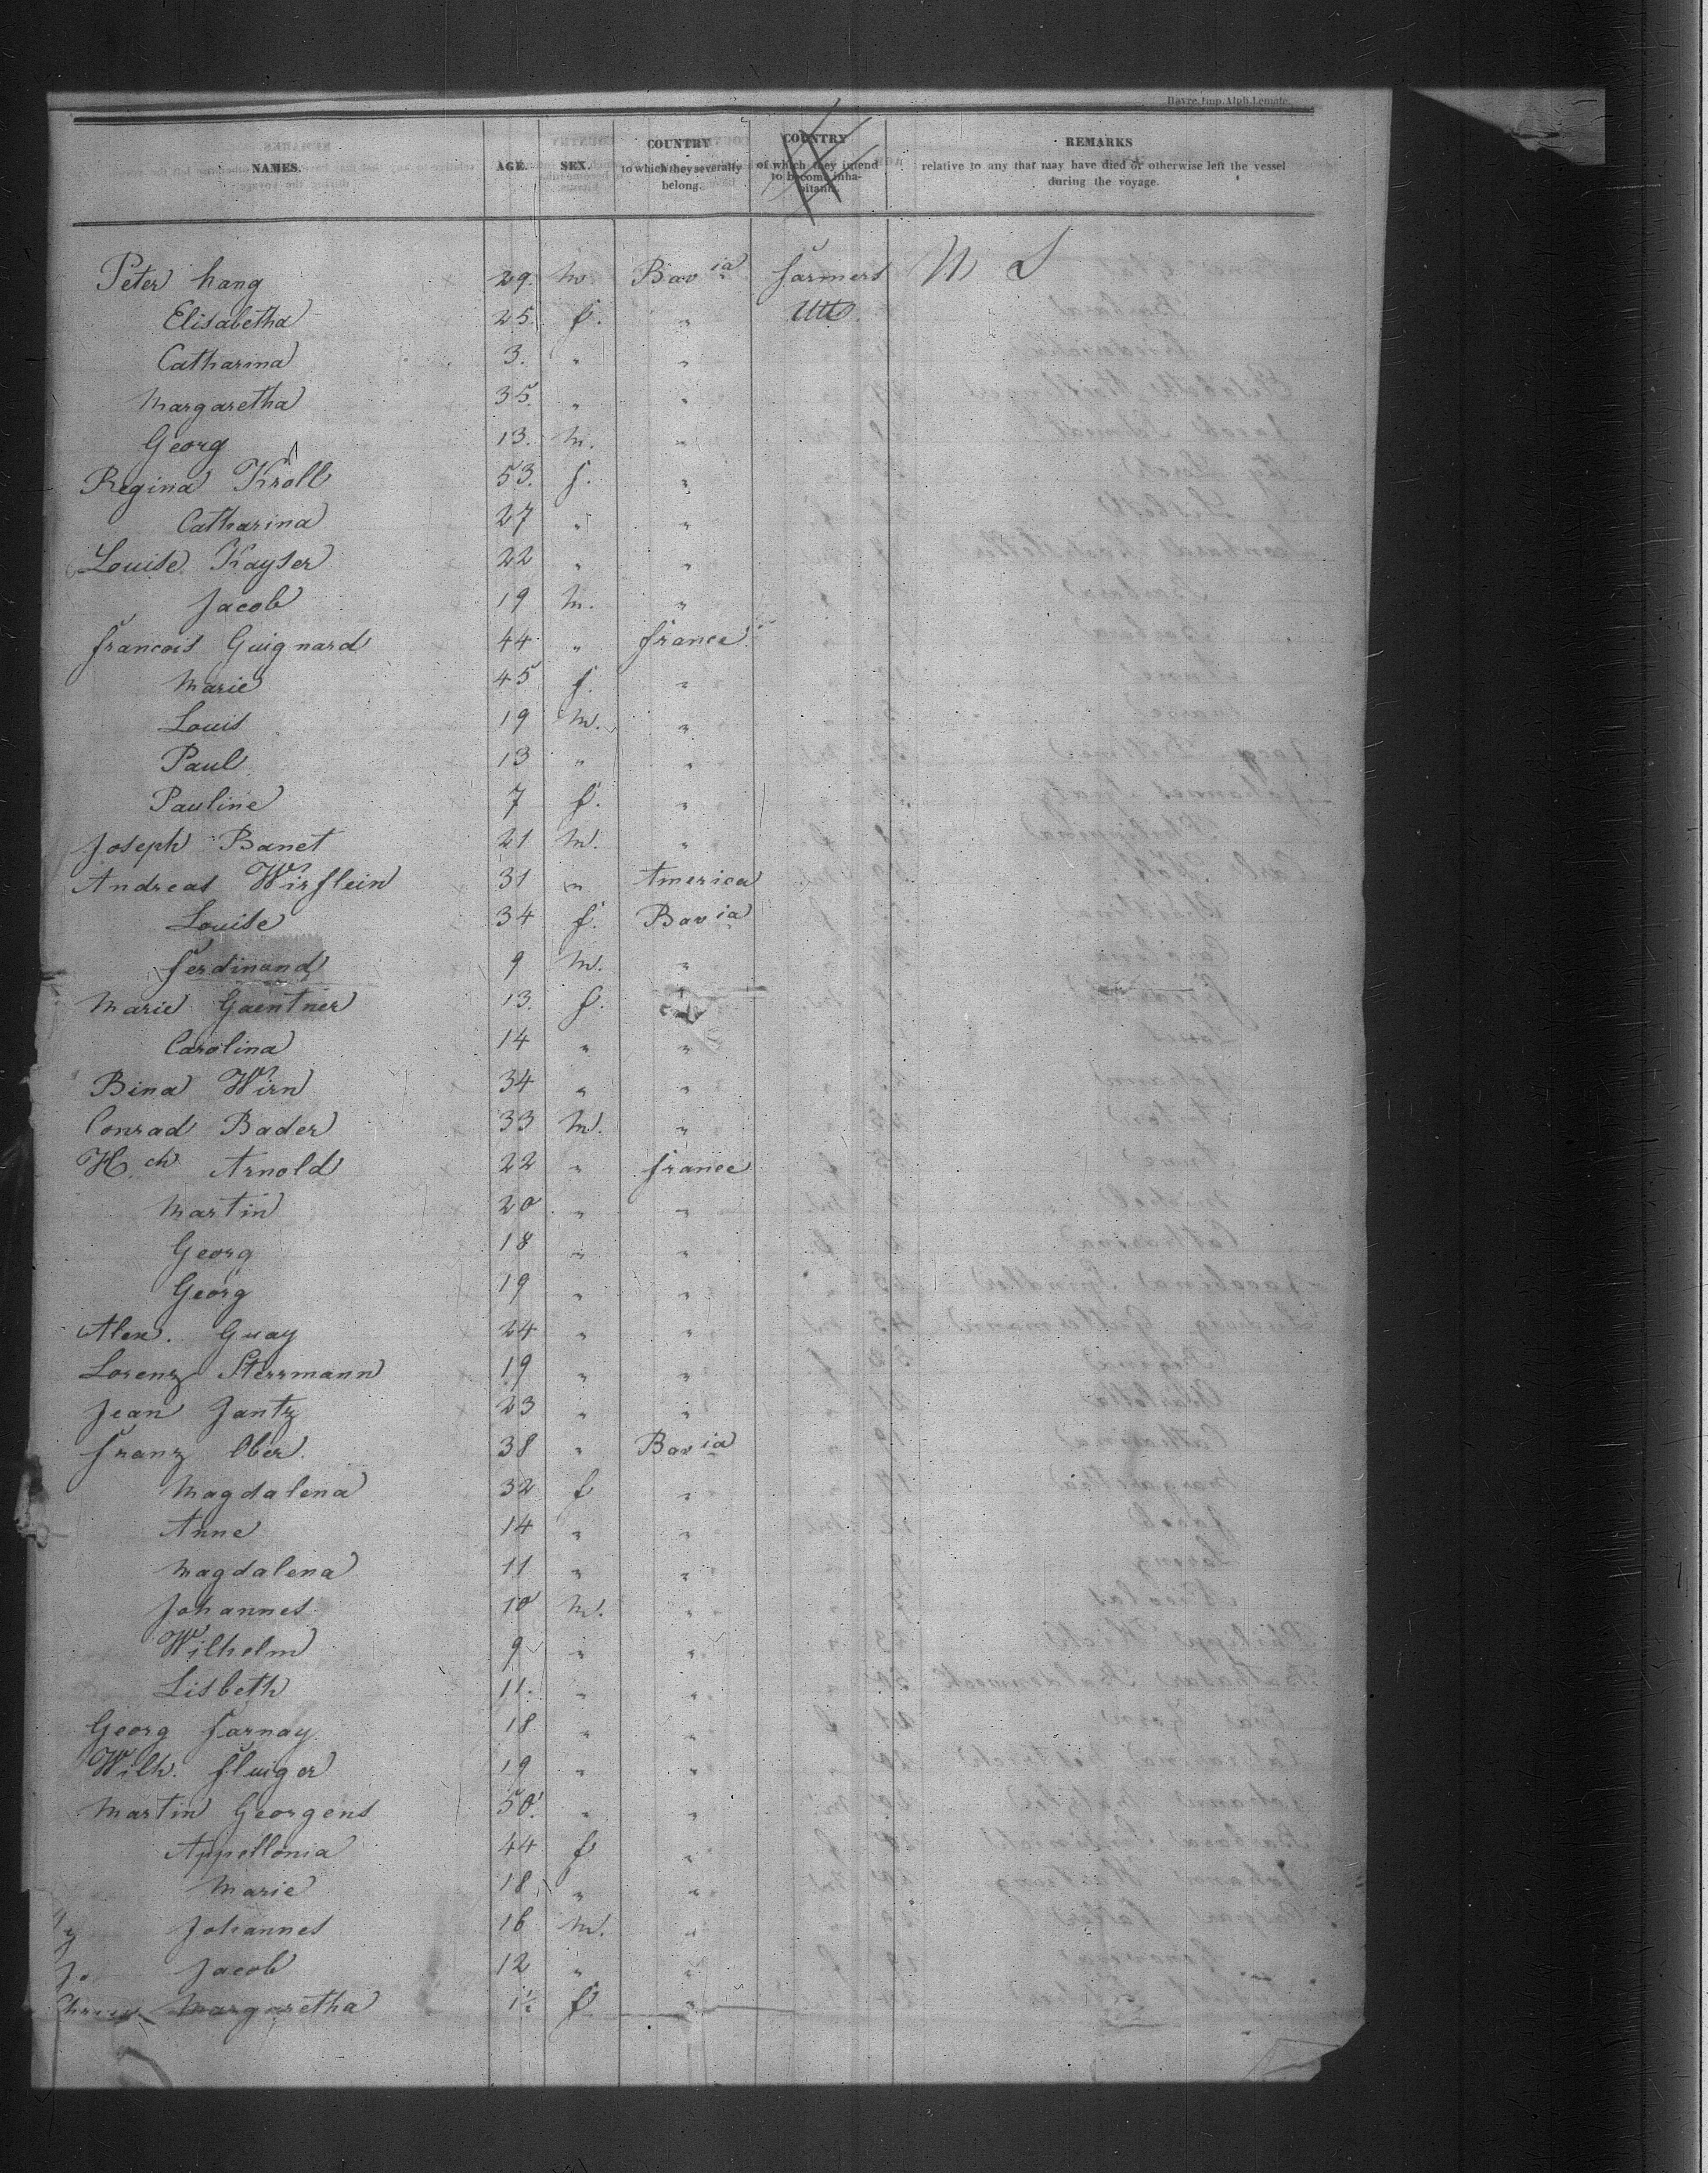 Havre, Imp. Alph. Lemale.
NAMES. AGE. SEX. COUNTRY to which they severally belong. COUNTRY of which they intend to become inhabitants. REMARKS relative to any that may have died or otherwise left the vessel during the voyage.
Peter Lang 29. m Bav ia farmers
Elisabetha 25. f. "
Catharina 3. " "
Margaretha 35. " "
Georg 13. m. "
Regina Kroll 53. f. "
Catharina 27 " "
Louise Kayser 22 " "
Jacob 19 m. "
Francois Guignard 44 " France
Marie 45 f. "
Louis 19 m. "
Paul 13 " "
Pauline 7 f. "
Joseph Banet 21 m. "
Andreas Wirflein 31 " America
Louise 34 f. Bav ia
Ferdinand 9 m. "
Marie Gaentner 13. f.
Carolina 14 " "
Bina Wirn 34 " "
Conrad Bader 33 m. "
H. ch Arnold 22 " France
Martin 20 " "
Georg 18 " "
Georg 19 " "
Alex. Guay 24 " "
Lorenz Sterrmann 19 " "
Jean Jantz 23 " "
Franz Ober. 38 " Bav ia
Magdalena 32 f "
Anne 14 " "
Magdalena 11 " "
Johannes 10 m. "
Wilhelm 9 " "
Lisbeth 11. " "
Georg Farnay 18 " "
Wilh. Fluiger 19 " "
Martin Georgens 50. " "
Appellonia 44 f "
Marie 18 " "
Johannes 16 m. "
Jacob 12 " "
Margaretha 1½ f "